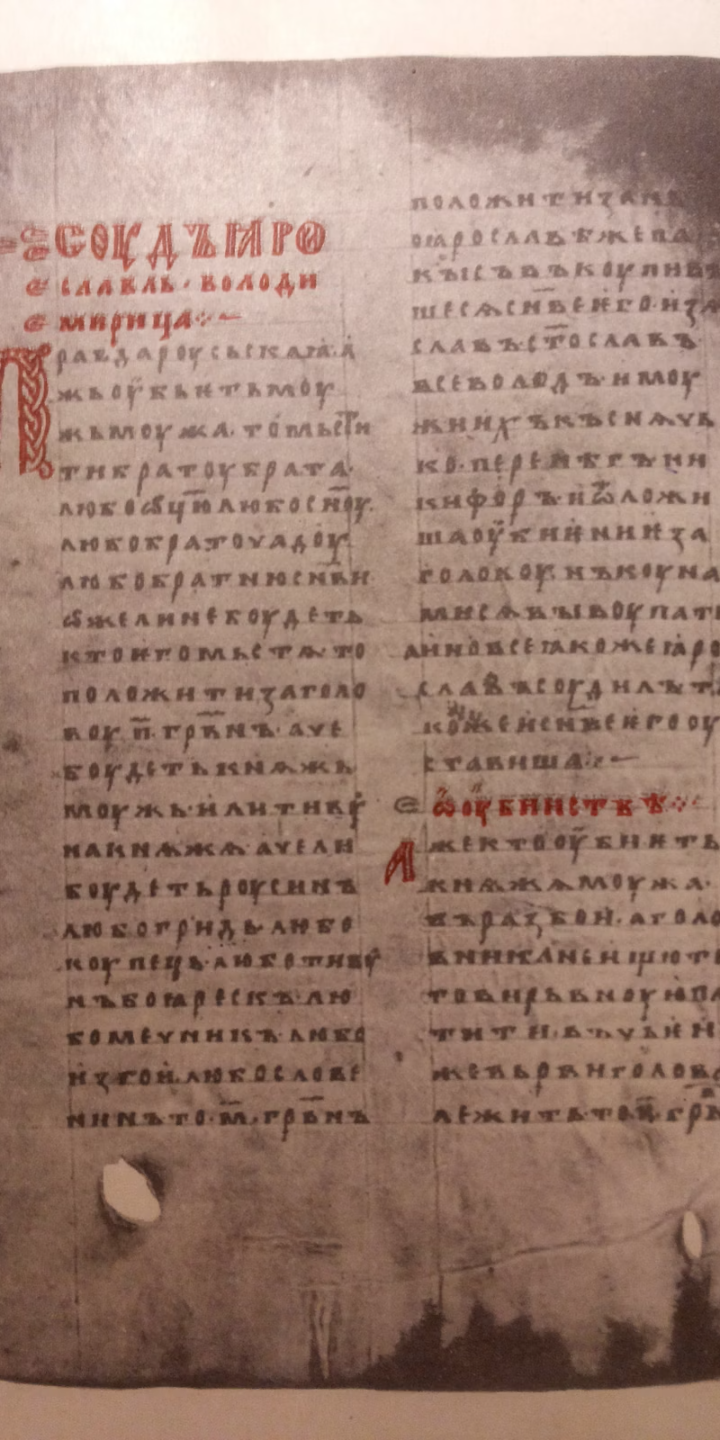 СОУДЪ ꙖРО
СЛАВЛЬ · ВОЛОДИ
МИРИЦА
Правда роусьскаꙗ · а
жь оубьѥть моу
жь моужа · то мьсти
ти братоу брата ·
любо ѿцю любо сн҃оу ·
любо братоучадоу
любо братню сн҃ви
ѡже ли не боудеть
кто ѥго мьстѧ то
положити за голо
воу · п҃ · гр҃внъ · аче
боудеть кнѧжь
моужь · или тивоу
на кнѧжѧ · аче ли
боудеть роусинъ
любо гридь · любо
коупець · любо тивоу
нъ боꙗрескъ лю
бо мечникъ любо
изгои · любо слове
нинъ то · м҃ · гр҃внъ
положити за нь
о ꙗрославѣ же па
кы съвъкоупивъ
шесѧ сн҃ве ѥго · изѧ
славъ ст҃ославъ
всеволодъ · и моу
жи ихъ къснѧчь
ко · перенѣгъ ни
кифоръ · и ѿложи
ша оубиѥниѥ за
головоу нъ коуна
ми сѧ выкоупати
а ино все ꙗкоже ꙗро
славъ соудилъ та
коже и сн҃ве ѥго оу
ставиша
ѡ оубииствѣ
Аже кто оубиѥть
кнѧжа моужа ·
въ разбои · а голо
вника не ищють
то вирьвноую пла
тити · въ чьѥи
же вьрви голова
лежить то · п҃ · гр҃в